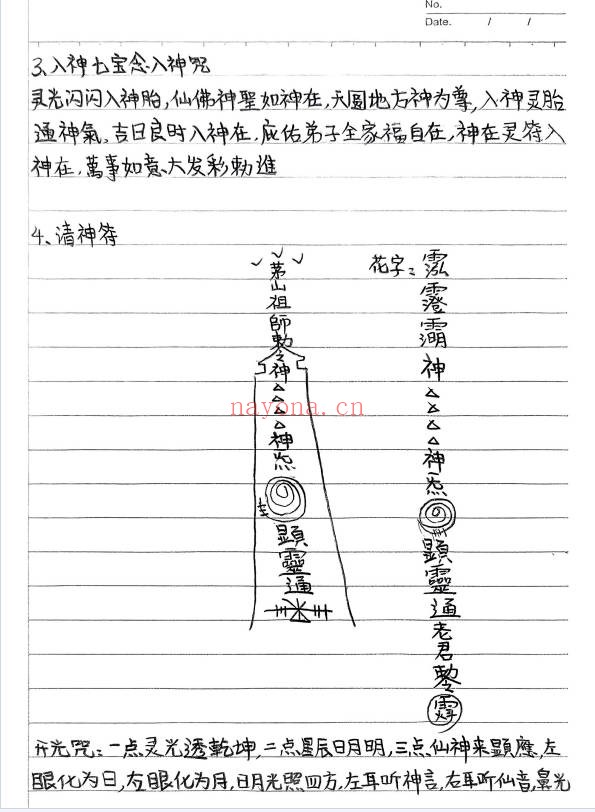 No.
Date. / /
3、入神七宝念入神咒
灵光闪闪入神胎,仙佛神聖如神在,天圆地方神为尊,入神灵胎
通神氣。吉日良时入神在,庇佑弟子全家福自在,神在灵符入
神在,萬事如意大发彩勅進
4、请神符
茅山祖師勅令神
神炁
顕靈通
花字:
神
神炁
顕靈通老君勅令
nayona.cn
开光咒:一点灵光透乾坤,二点星辰日月明,三点仙神来顕應,左
眼化为日,右眼化为月,日月光照四方,左耳听神言,右耳听仙音,鼻光